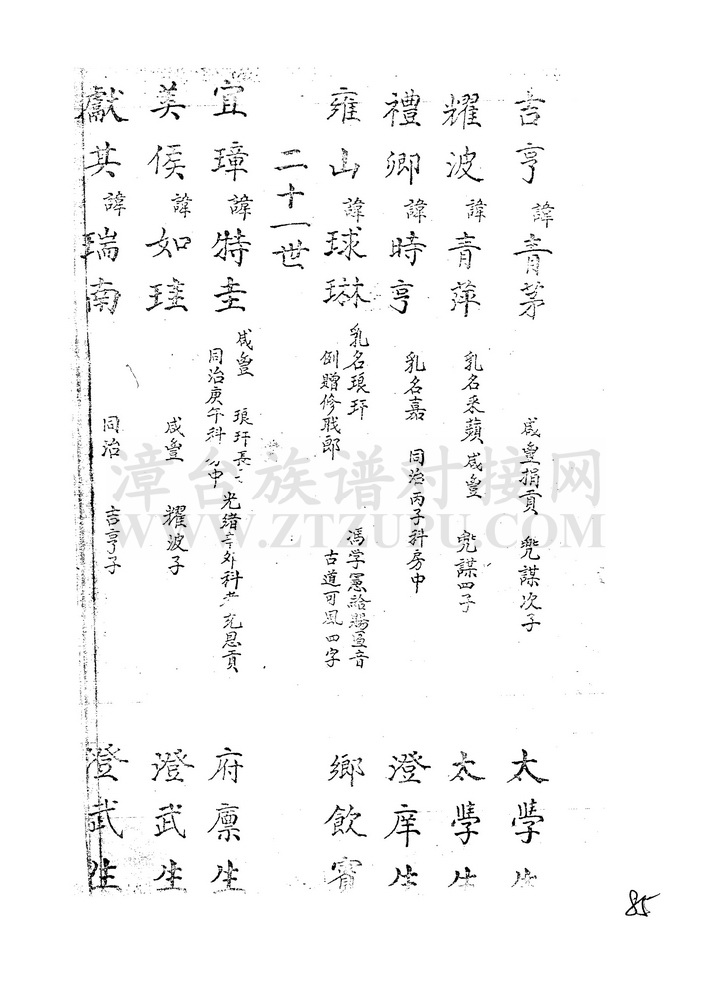 吉亨 諱青茅 咸豊捐貢 兠謀次子 太學生
耀波 諱青萍 乳名釆蘋 咸豊 兠謀四子 太學生
禮卿 諱時亨 乳名嘉 同治丙子科房中 澄庠生
雍山 諱球琳 乳名琅玕 馮学憲給賜 音 鄉飲賓
例贈修職郎 古道可風四字
二十一世
宜璋 諱特圭 咸豊 琅玕長 光緒 外科 充恩貢 府廪生
同治庚午科 中
美侯 諱如珪 咸豊 耀波子 澄武生
獻其 諱瑞南 同治 吉亨子 澄武生
漳台族谱对接网
WWW.ZTZUPU.COM
85